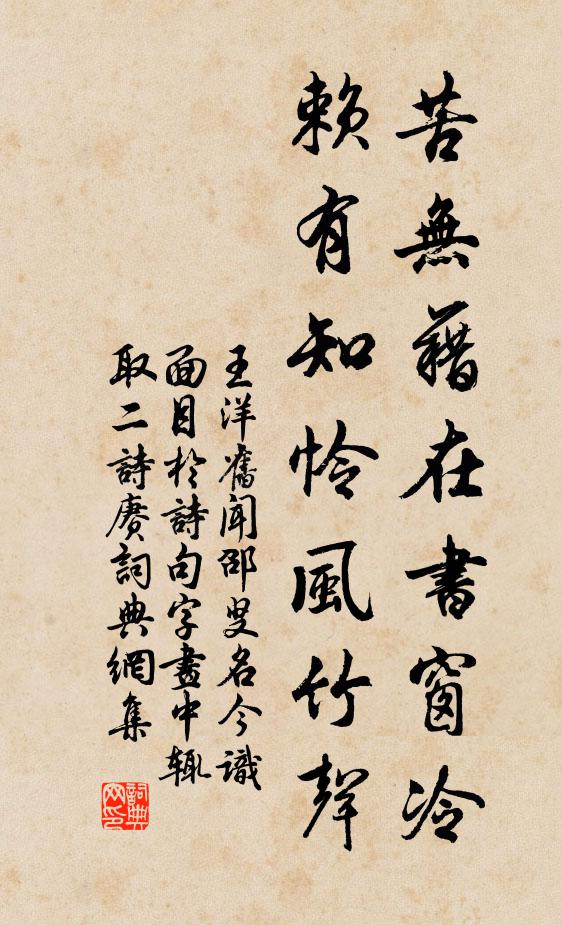 苦無藉在書窗冷
賴有知怜風竹聲
王洋舊聞邵叟名今識
面目於詩句字畫中輒
取二詩賡詞典網集
詞典网印